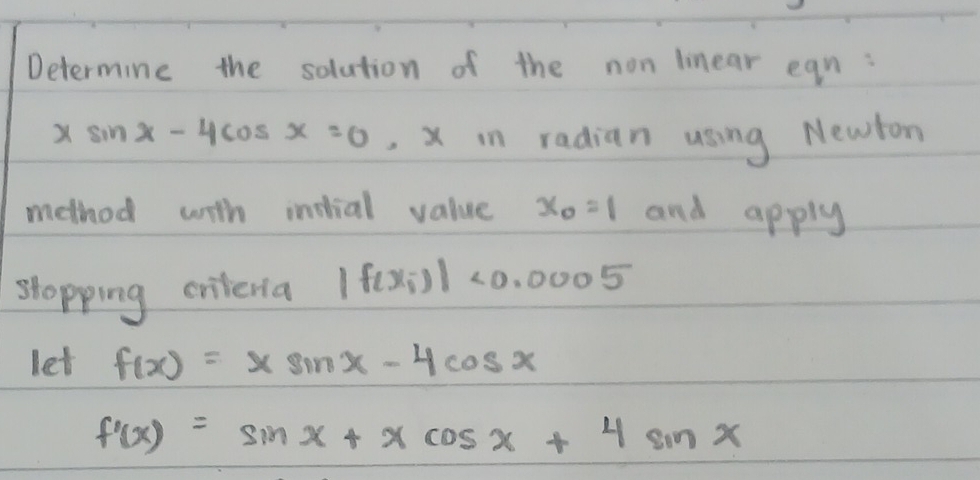 Determine the solution of the non linear eqn :
x sin x - 4cos x = 0 , x in radian using Newton
method with initial value x₀ = 1 and apply
stopping criteria |f(xᵢ)| < 0.0005
let f(x) = x sin x - 4 cos x
f'(x) = sin x + x cos x + 4 sin x